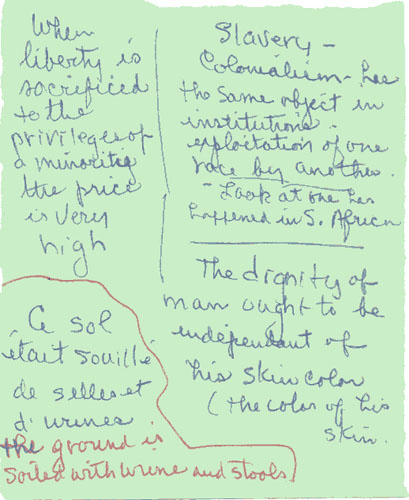 When
liberty is
sacrificed
to the
privileges of
a minoritie
the price
is very
high
Slavery -
Colonialism - has
the same object in
institutions -
exploitation of one
race by another.
- Look at one has
happened in S. African
The dignity of
man ought to be
independant of
his skin color
( the color of his
skin.
Ce sol
était souillé
de selles et
d'urines
the ground is
soiled with urine and stools